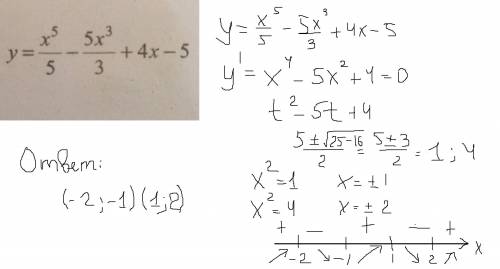 y = x⁵/5 − 5x³/3 + 4x − 5
y = x⁵/5 − 5x³/3 + 4x − 5
y' = x⁴ − 5x² + 4 = 0
t² − 5t + 4
(5 ± √(25−16))/2 = (5 ± 3)/2 = 1 ; 4
x² = 1 x = ± 1
x² = 4 x = ± 2
+ − + − +
−2 −1 1 2 x
Ответ:
(−2 ; −1) (1; 2)